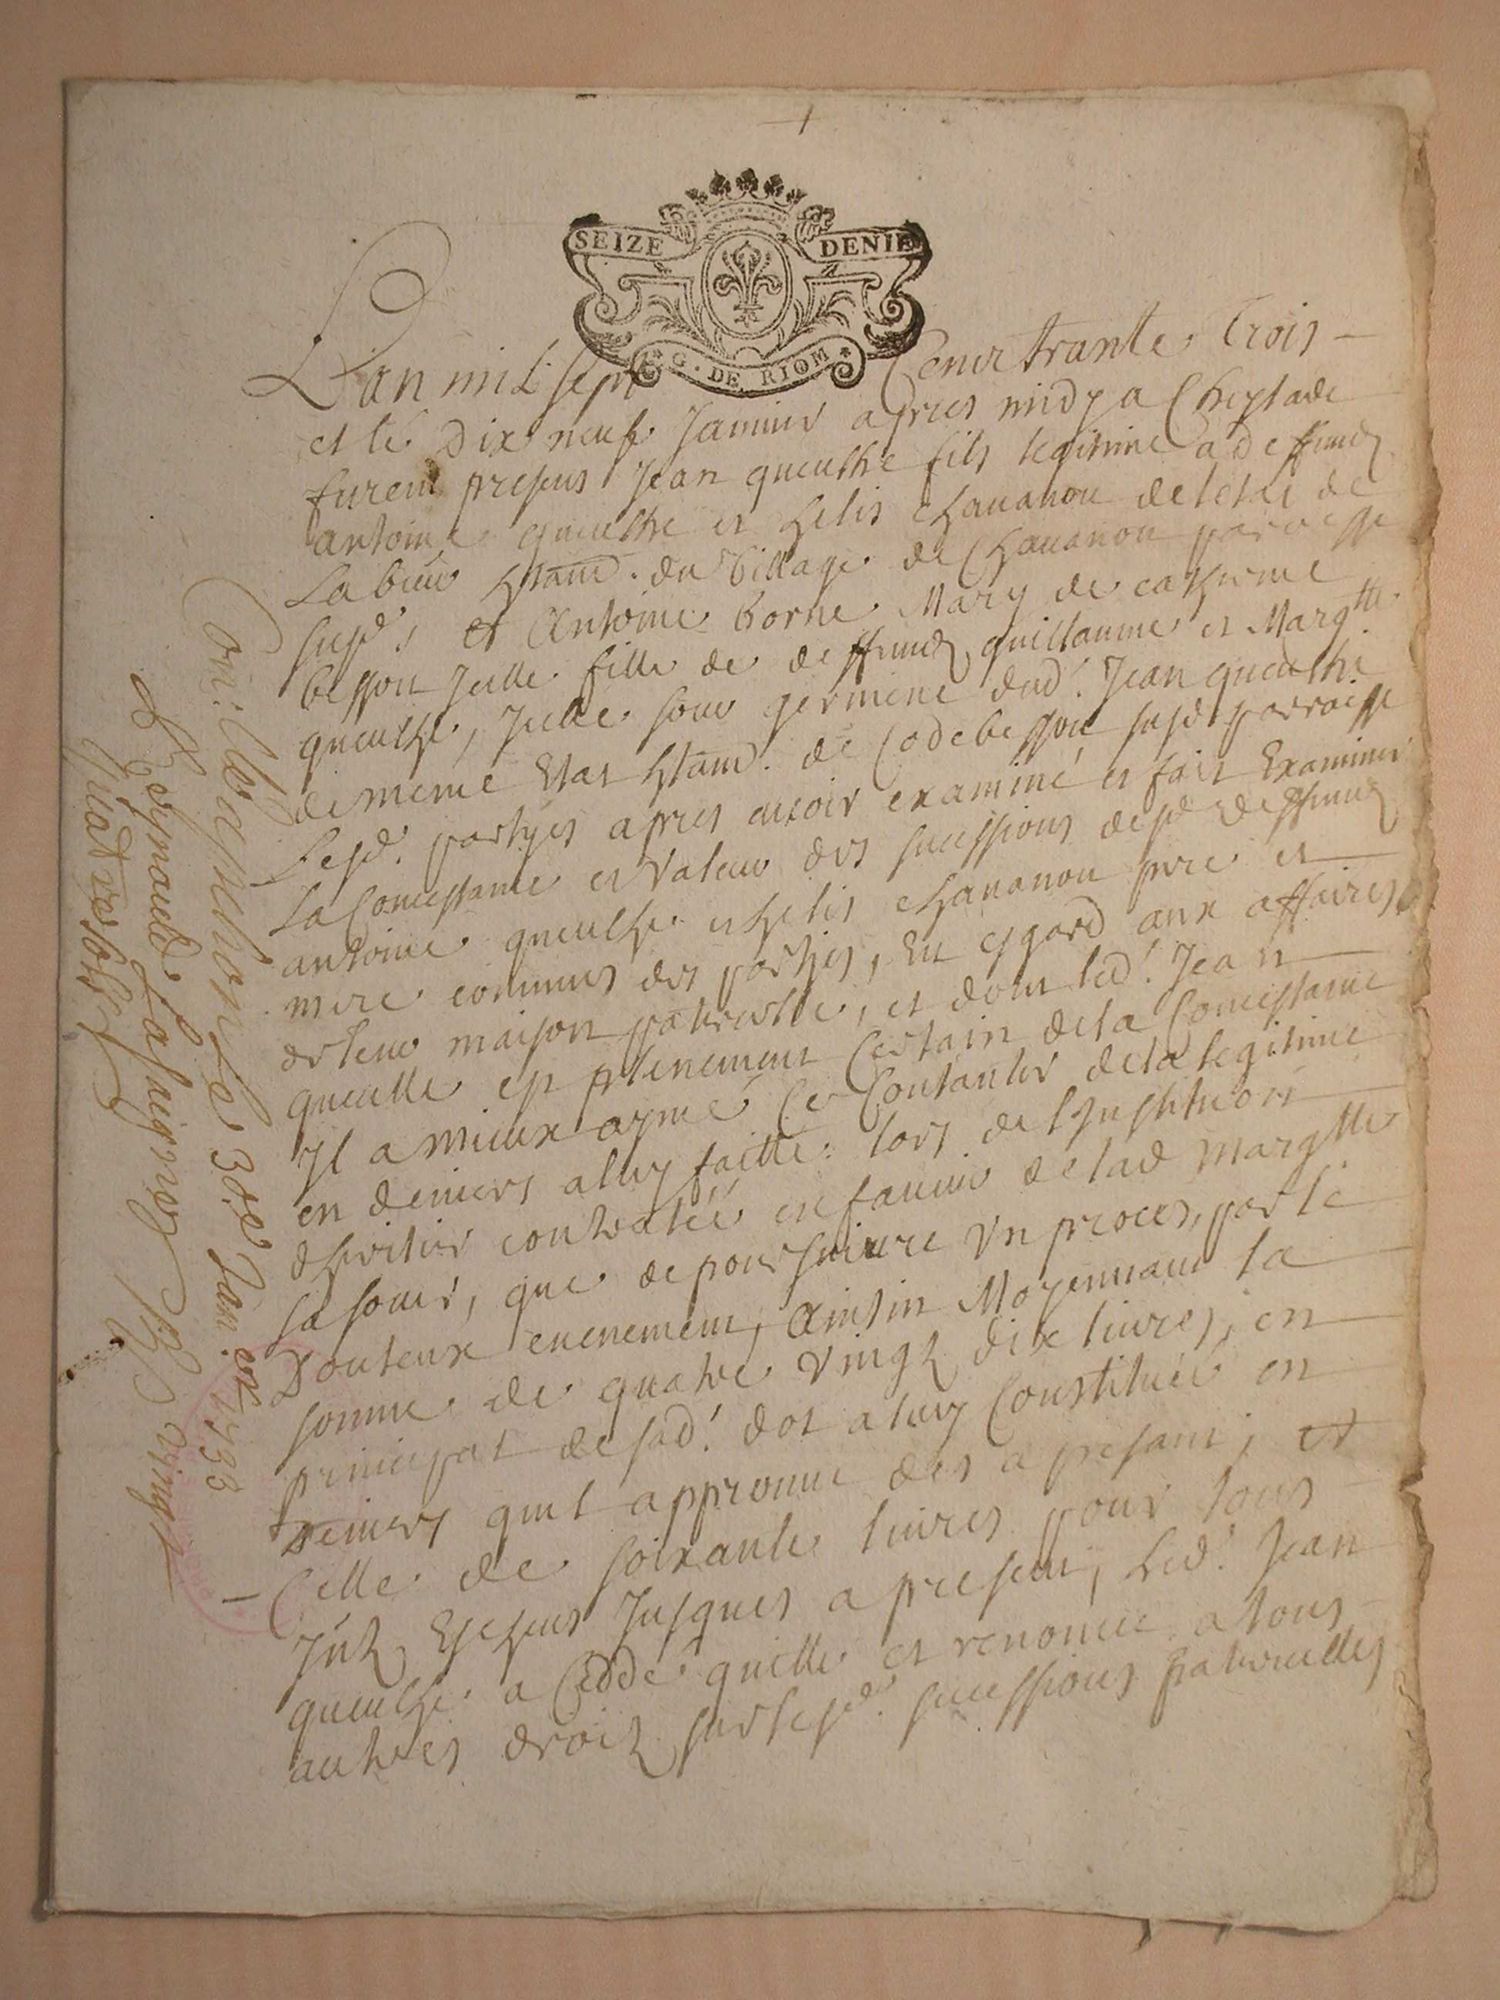 SEIZE DENIE
G. DE RIOM
L'an mil sept Cent trante Trois
et le Dix neuf Janvier apres midy a Cheylade
furent presens Jean queulhe fils legitime a deffunctz
antoine queulhe et helis chavanon de letat de
Labeur du Village de Chavanon parroisse
susd. et Antoine borne Mary de catherine
besson Jcelle fille de deffunctz guillaume et Margtte
queulhe, Jcelle sœur germene dud. Jean queulhe
de meme Etat de Codebesson susd parroisse
Lesd. partyes apres avoir examiné et fait Examiner
La Concistance et valeur des sucessions desd deffunctz
antoine queulhe et helis chavanon pere et
mere communs des partyes, Eu esgard aux affaires
de leur maison paternelle, et dont led. Jean
queulhe est plenement Certain de la Concistance
Jl a mieux aymé Ce Contanter de la legitime
en deniers a luy faitte lors de l'Justitution
dheritier contratée en faveur de lad Margtte
sa soeur, que de poursuivre Un proces, par le
Douteux evenement, Moyennant la
somme de quatre vingt dix livres, en
principal de sad. dot a luy Constituée en
Deniers quil approuve des a presant, et
Celle de soixante livres pour tous
Jntz Jusques a present, Led. Jean
queulhe a Ceddé quitte et renoncé a tous
autres droitz sur lesd. sucessions paternelles
Con. le 30e Janer 1733
Reynauld
vingt